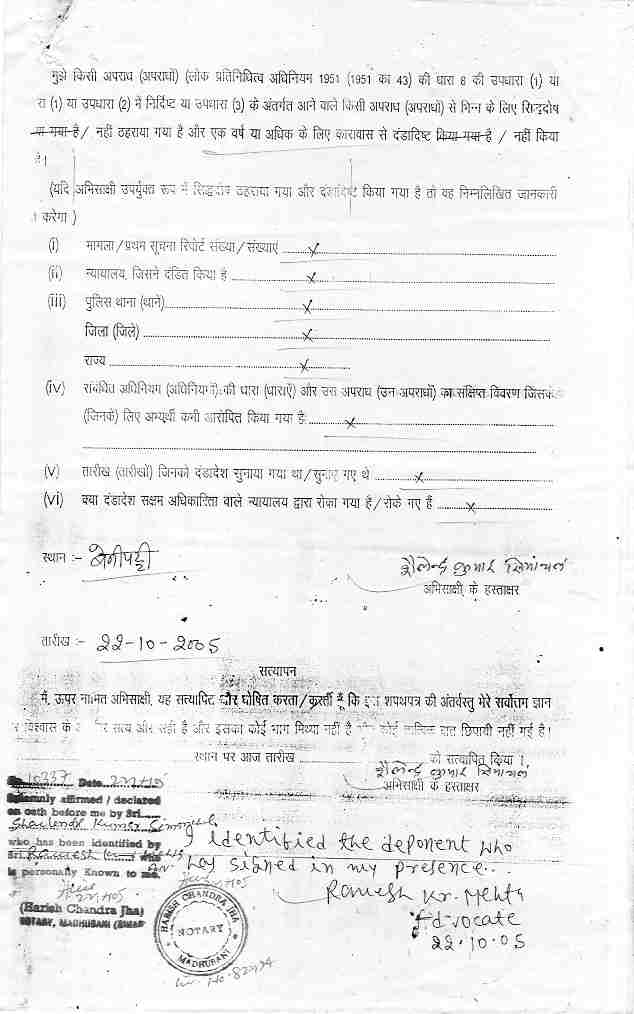 मुझे किसी अपराध (अपराधों) (लोक प्रतिनिधित्व अधिनियम 1951 (1951 का 43) की धारा 8 की उपधारा (1) या
रा (1) या उपधारा (2) में निर्दिष्ट या उपधारा (3) के अंतर्गत आने वाले किसी अपराध (अपराधों) से भिन्न के लिए सिद्धदोष
या गया है / नहीं ठहराया गया है और एक वर्ष या अधिक के लिए कारावास से दंडादिष्ट किया गया है / नहीं किया
है।
(यदि अभिसाक्षी उपर्युक्त रूप में सिद्धदोष ठहराया गया और दंडादिष्ट किया गया है तो वह निम्नलिखित जानकारी
करेगा)
(i) मामला/प्रथम सूचना रिपोर्ट संख्या/संख्याएं ....... x .......
(ii) न्यायालय, जिसने दंडित किया है ....... x .......
(iii) पुलिस थाना (थाने) ....... x .......
जिला (जिले) ....... x .......
राज्य ....... x .......
(iv) संबंधित अधिनियम (अधिनियमों) की धारा (धाराएं) और उस अपराध (उन अपराधों) का संक्षिप्त विवरण जिसके
(जिनके) लिए अभ्यर्थी कभी आरोपित किया गया है: ....... x .......
(v) तारीख (तारीखों) जिनको दंडादेश सुनाया गया था/सुनाए गए थे ....... x .......
(vi) क्या दंडादेश सक्षम अधिकारिता वाले न्यायालय द्वारा रोका गया है/रोके गए हैं ....... x .......
स्थान :- बेनीपट्टी
शैलेन्द्र कुमार
अभिसाक्षी के हस्ताक्षर
तारीख :- 22-10-2005
सत्यापन
मैं, ऊपर नामित अभिसाक्षी, यह सत्यापित और घोषित करता/करती हूँ कि इस शपथपत्र की अंतर्वस्तु मेरे सर्वोत्तम ज्ञान
विश्वास के सत्य और सही है और इसका कोई भाग मिथ्या नहीं है और कोई तात्विक बात छिपायी नहीं गई है।
स्थान पर आज तारीख ....... को सत्यापित किया।
शैलेन्द्र कुमार
अभिसाक्षी के हस्ताक्षर
10337 Date
Solemnly affirmed / declared
on oath before me by Sri
Shailendr Kumar
who has been identified by
Sri Ramesh Kr. Mehta who
is personally Known to me.
(Harish Chandra Jha)
NOTARY, MADHUBANI (BIHAR
HARISH CHANDRA JHA
NOTARY
MADHUBANI
I identified the deponent who
has signed in my presence..
Ramesh Kr. Mehta
Advocate
22.10.05